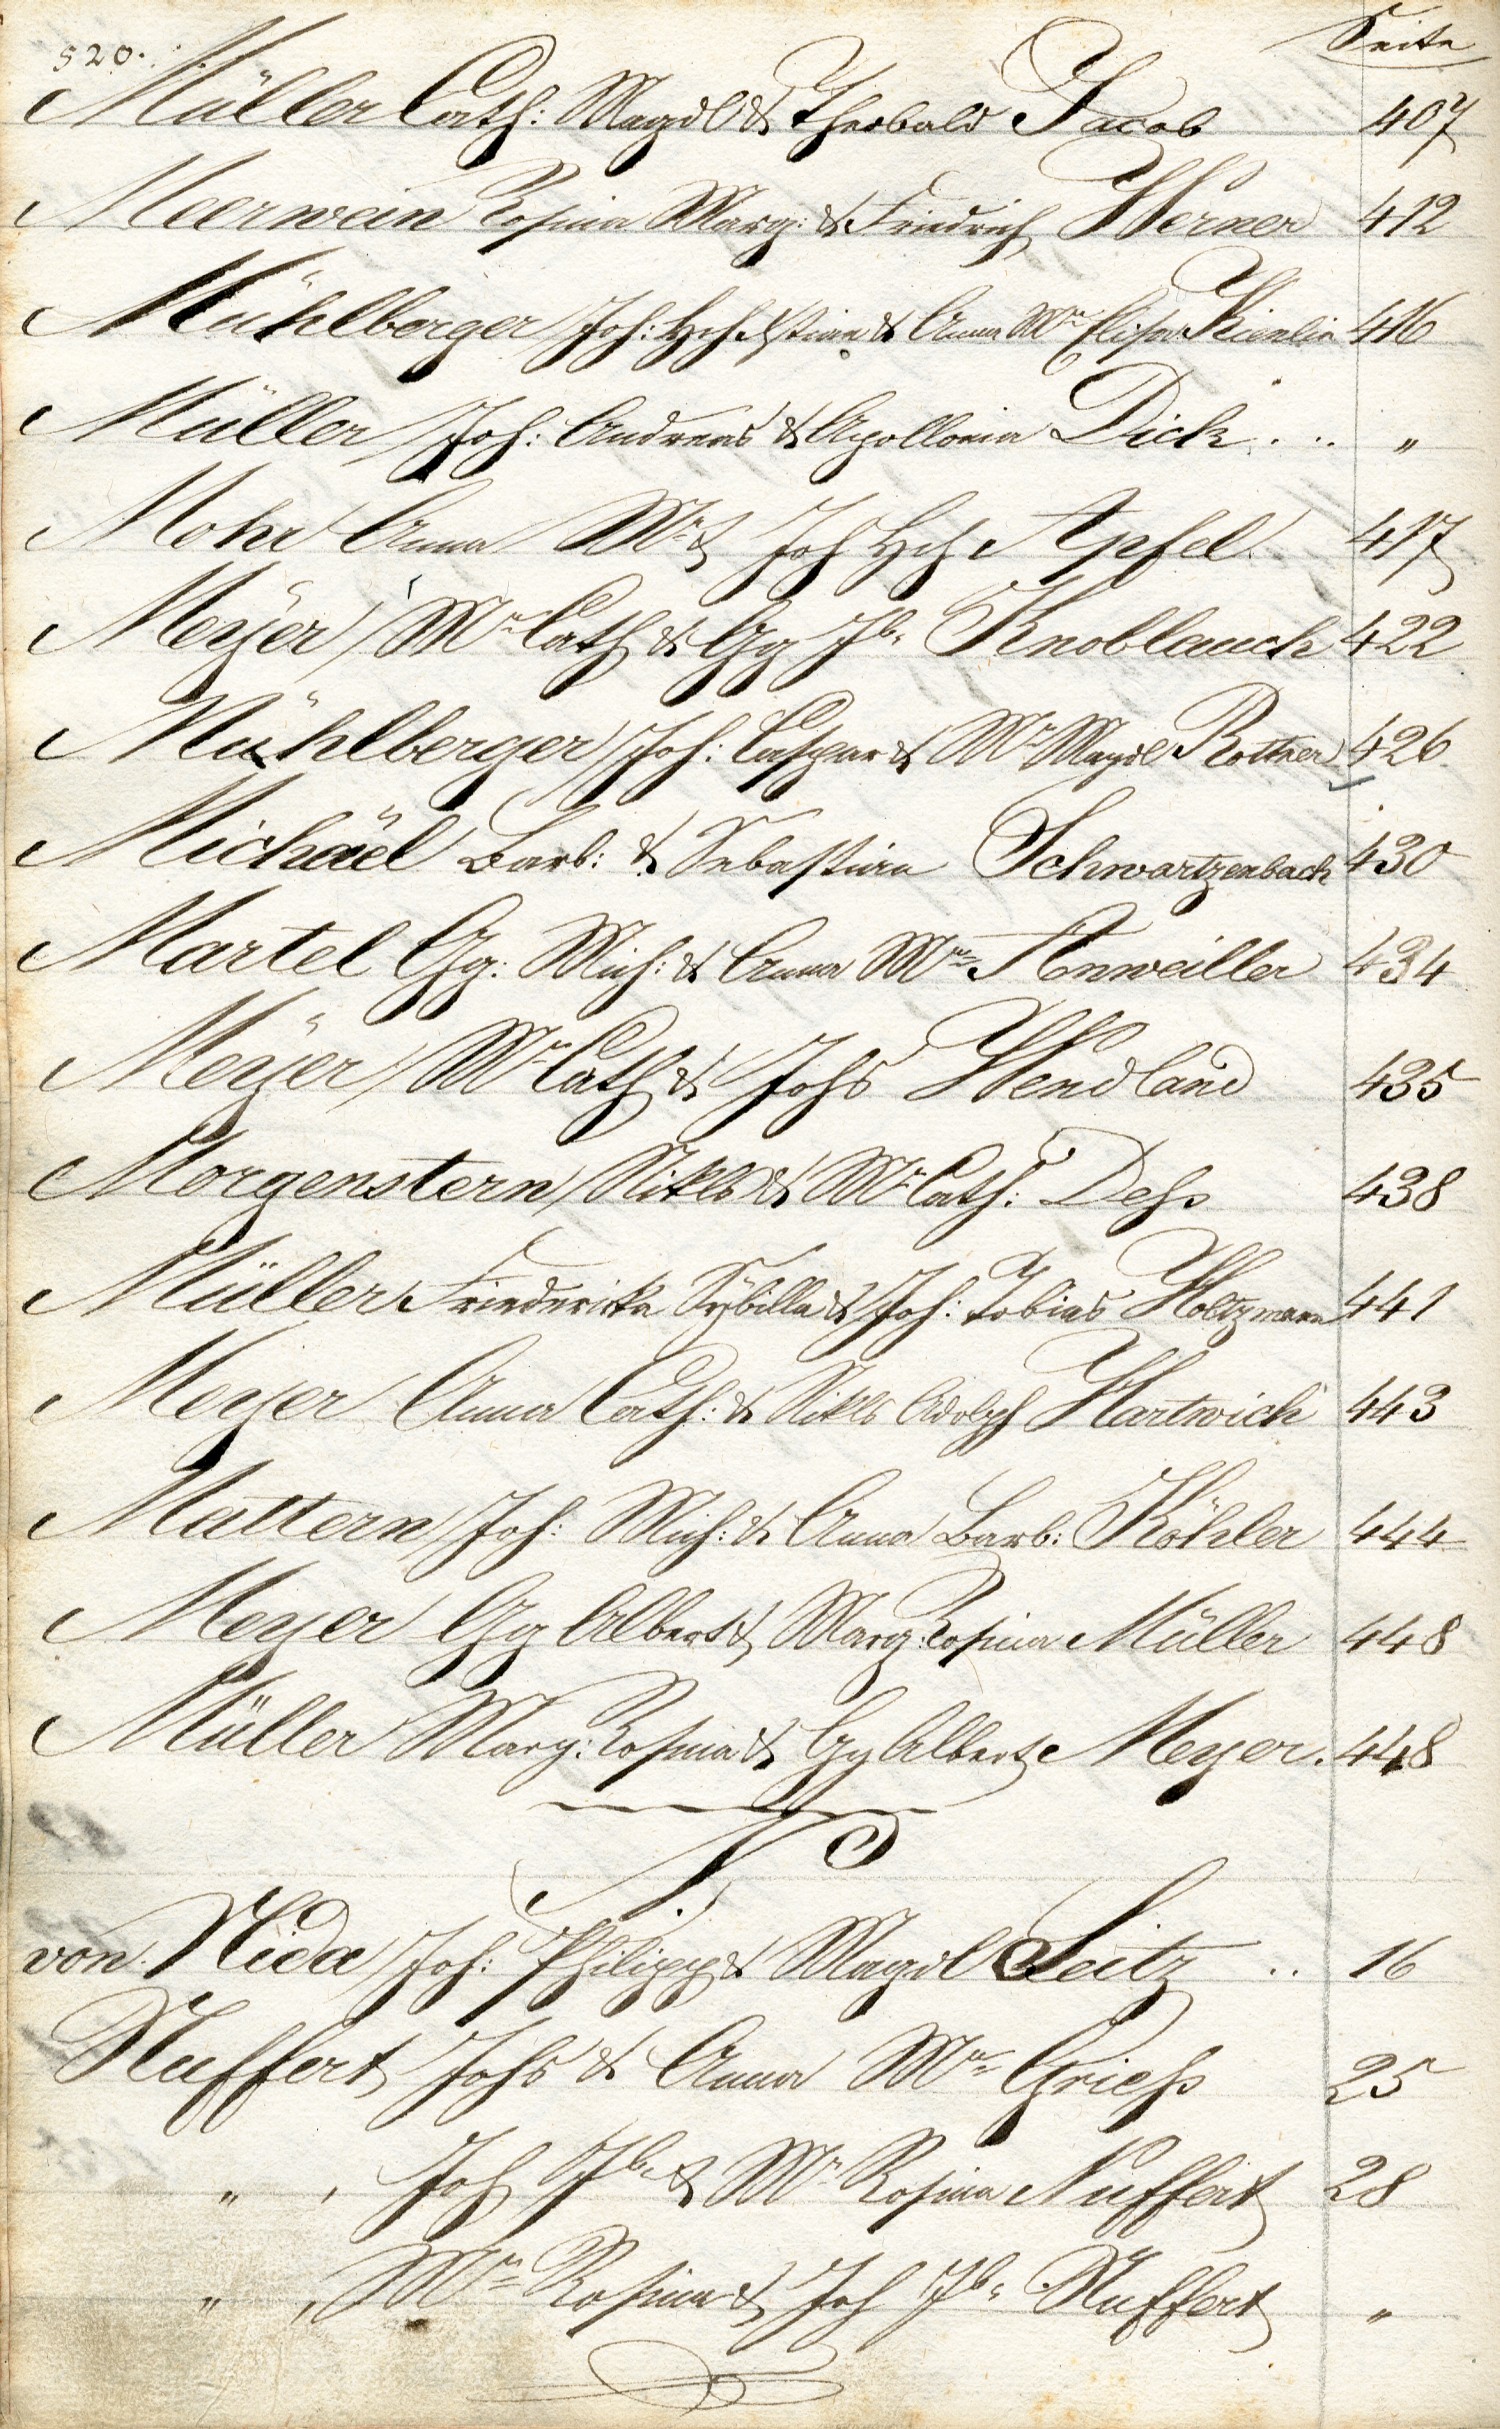 520.
Seite
Müller Cath: Magdl & Theobald Jacob 407
Meerwein Rosina Marg: & Friedrich Werner 412
Mühlberger Joh: Hch & Anna Mr Elisa Kienlin 416
Müller Joh: Andreas & Apollonia Dick . .. "
Mohr Anna Mr & Joh Hch Apfel. 417
Meÿer Mr Cath & Gg Jb. Knoblauch 422
Mühlberger Joh: Caspar & Mr Magdl Rottner 426
Michäel Barb: & Sebastian Schwartzenbach 430
Martel Gg: Mich: & Anna Mr Anweiller 434
Meÿer Mr Cath & Johs Wendland 435
Morgenstern Nikls & Mr Cath: Dehs 438
Müller Friedericka Sÿbilla & Joh: Tobias Holtzmann 441
Meyer Anna Cath: & Nikls Adolph Hartwich 443
Mattern Joh: Mich: & Anna Barb: Köhler 444
Meyer Gg Albert & Marg: Rosina Müller 448
Müller Marg: Rosina & Gg Albert Meyer. 448
N.
von Nida Joh: Philipp & Magdl Seitz .. 16
Nuffert Johs & Anna Mr Griehs 25
" , Joh Jb. & Mr Rosina Nuffert 28
" , Mr Rosina & Joh Jb. Nuffert "